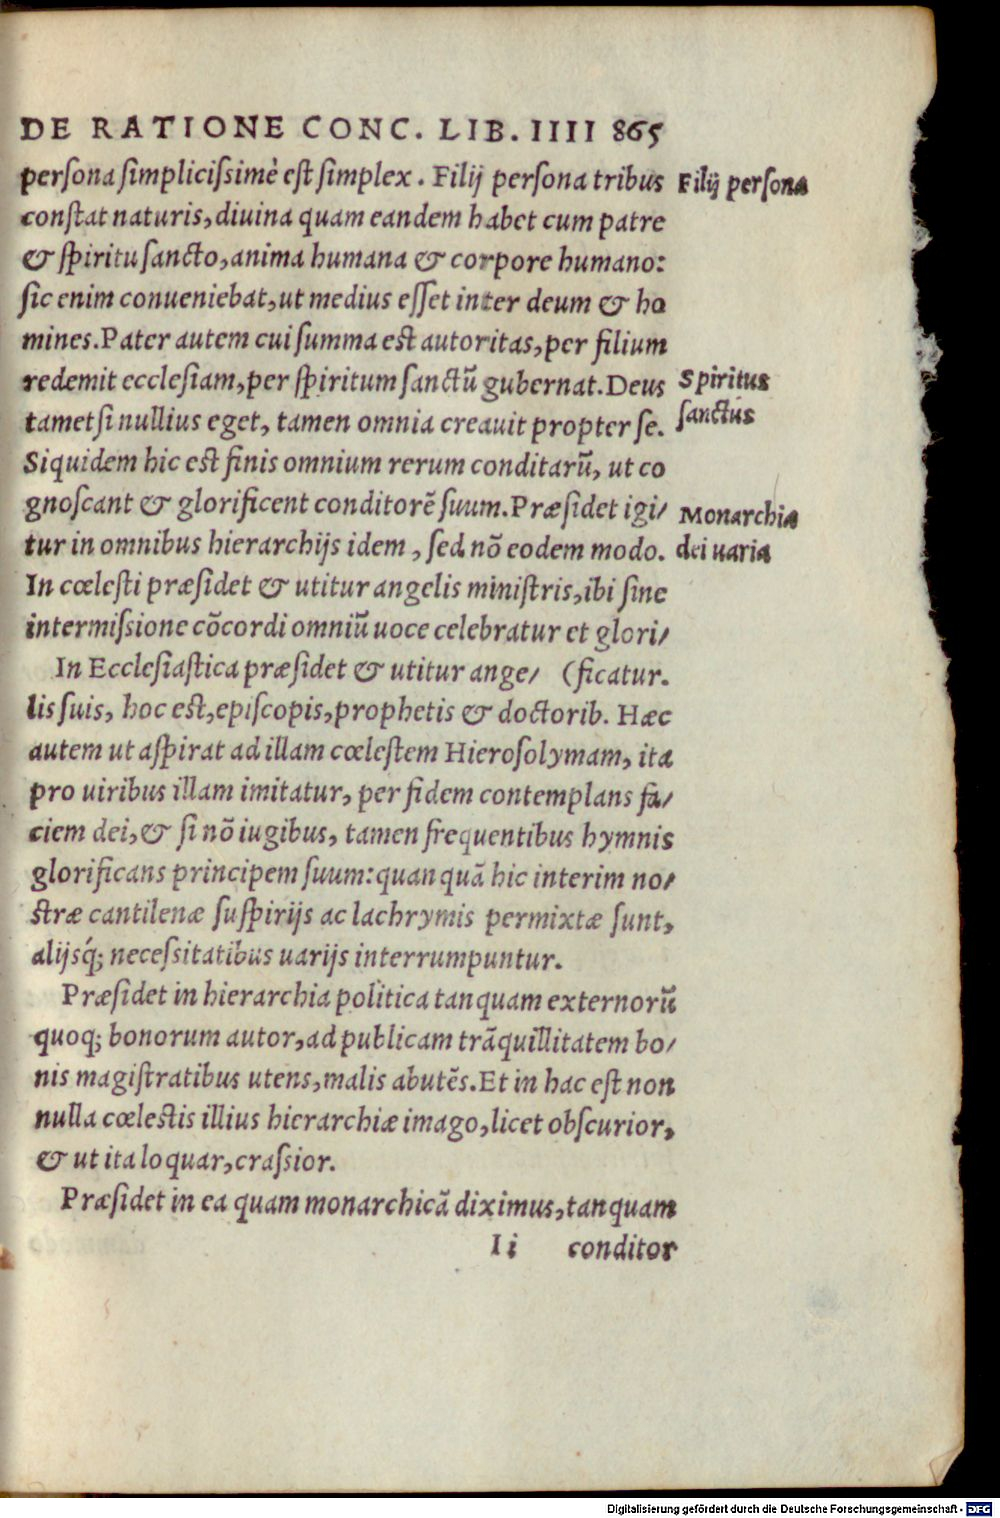 DE RATIONE CONC. LIB. IIII 865
persona simplicissimè est simplex. Filij persona tribus
Filij persona
constat naturis, diuina quam eandem habet cum patre
& spiritu sancto, anima humana & corpore humano:
sic enim conueniebat, ut medius esset inter deum & ho
mines. Pater autem cui summa est autoritas, per filium
redemit ecclesiam, per spiritum sanctũ gubernat. Deus
Spiritus
sanctus
tametsi nullius eget, tamen omnia creauit propter se.
Siquidem hic est finis omnium rerum conditarũ, ut co
gnoscant & glorificent conditorẽ suum. Præsidet igi/
Monarchia
dei uaria
tur in omnibus hierarchijs idem, sed nõ eodem modo.
In cœlesti præsidet & utitur angelis ministris, ibi sine
intermissione cõcordi omniũ uoce celebratur et glori/
In Ecclesiastica præsidet & utitur ange/ (ficatur.
lis suis, hoc est, episcopis, prophetis & doctorib. Hæc
autem ut aspirat ad illam cœlestem Hierosolymam, ita
pro uiribus illam imitatur, per fidem contemplans fa/
ciem dei, & si nõ iugibus, tamen frequentibus hymnis
glorificans principem suum: quanquã hic interim no/
stræ cantilenæ suspirijs ac lachrymis permixtæ sunt,
alijsq́; necessitatibus uarijs interrumpuntur.
Præsidet in hierarchia politica tanquam externorũ
quoq; bonorum autor, ad publicam trãquillitatem bo/
nis magistratibus utens, malis abutẽs. Et in hac est non
nulla cœlestis illius hierarchiæ imago, licet obscurior,
& ut ita loquar, crassior.
Præsidet in ea quam monarchicã diximus, tanquam
Ii conditor
Digitalisierung gefördert durch die Deutsche Forschungsgemeinschaft - DFG